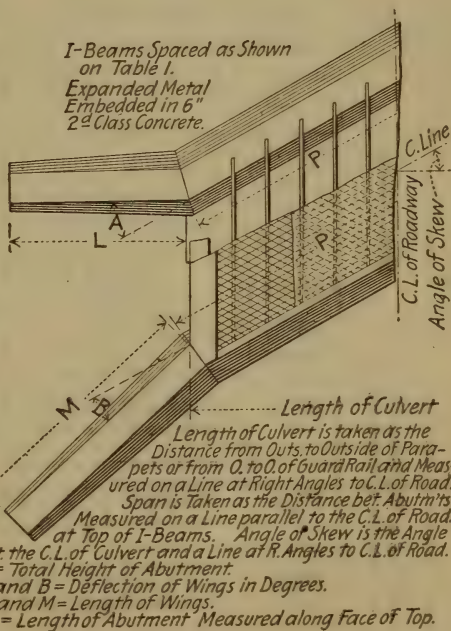 I-Beams Spaced as Shown
on Table I.
Expanded Metal
Embedded in 6"
2d Class Concrete.
C. Line
P
A
L
P
C.L. of Roadway
Angle of Skew
M
B
Length of Culvert
Length of Culvert is taken as the
Distance from Outs. to Outside of Para-
pets or from O. to O. of Guard Rail and Meas
ured on a Line at Right Angles to C.L. of Road.
Span is Taken as the Distance bet. Abutm'ts
Measured on a Line parallel to the C.L. of Road.
at Top of I-Beams. Angle of Skew is the Angle
t the C.L. of Culvert and a Line at R. Angles to C.L. of Road.
= Total Height of Abutment.
and B = Deflection of Wings in Degrees.
and M = Length of Wings.
= Length of Abutment Measured along Face of Top.